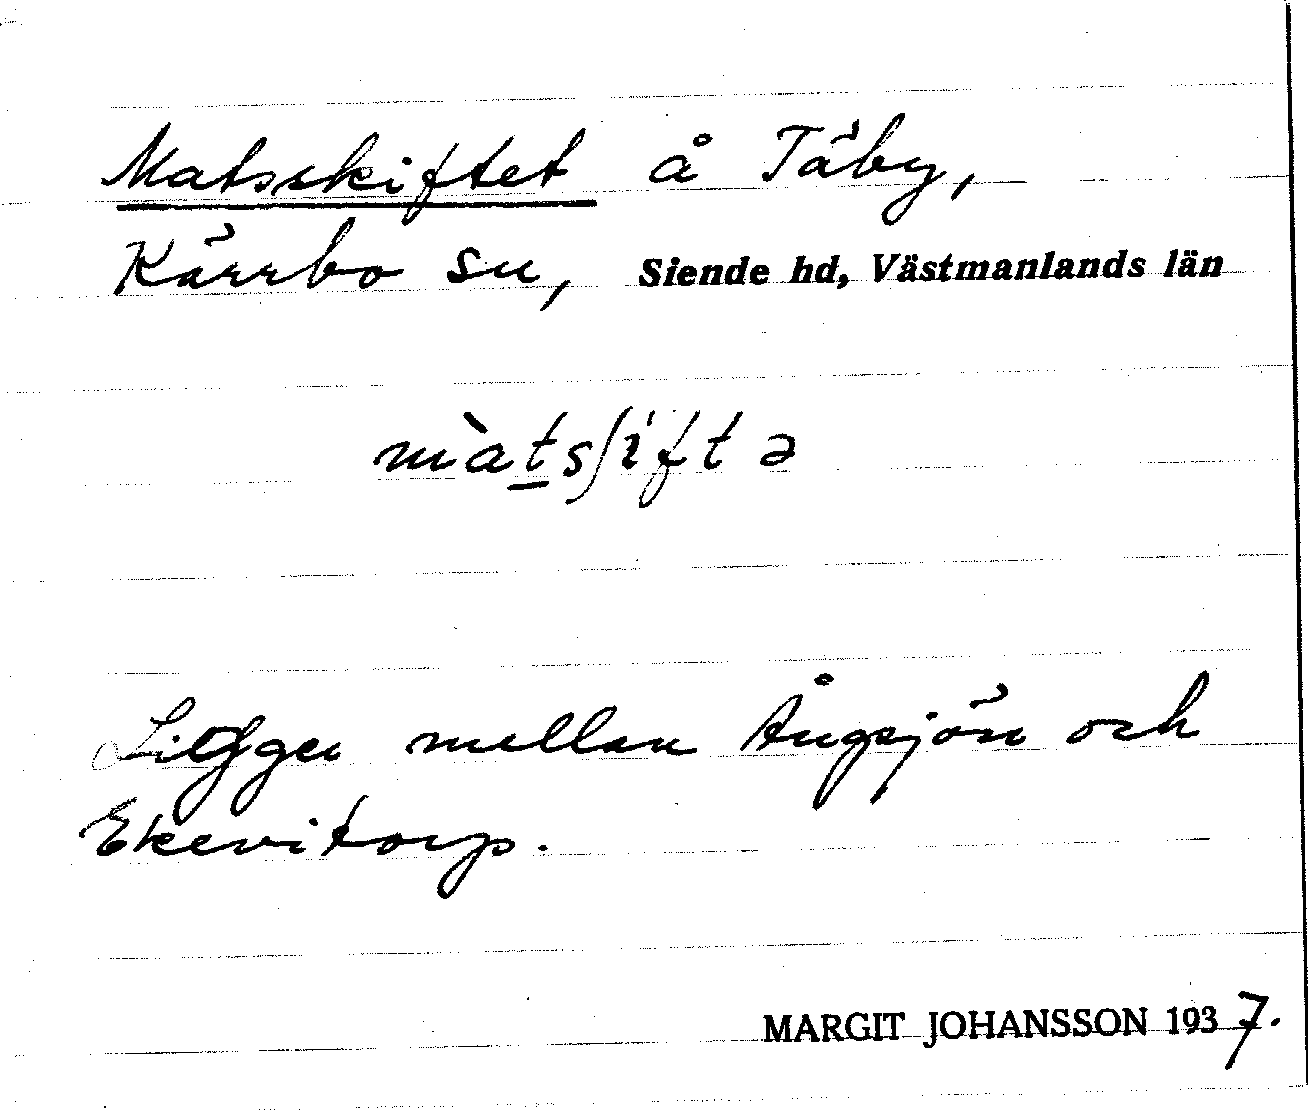 Matsskiftet å Täby,
Kärrbo sn, Siende hd, Västmanlands län
màtsʃıftə
Ligger mellan Ångsjön och
Ekevitorp.
MARGIT JOHANSSON 1937.